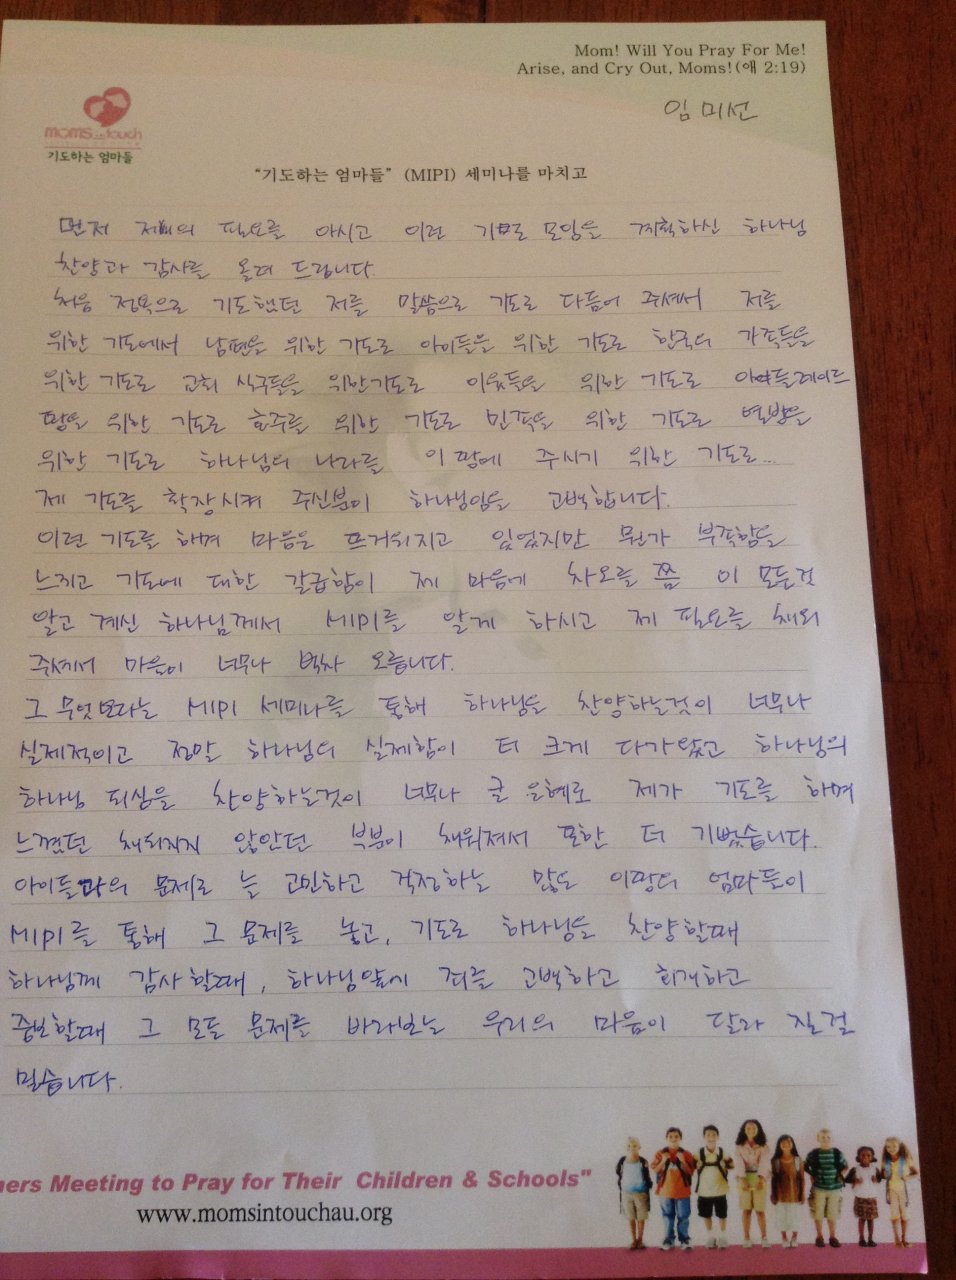 Mom! Will You Pray For Me!
Arise, and Cry Out, Moms!(애 2:19)
임미선
moms in touch
기도하는 엄마들
"기도하는 엄마들" (MIPI) 세미나를 마치고
먼저 저의 필요를 아시고 이런 기도 모임을 계획하신 하나님
찬양과 감사를 올려 드립니다
처음 정욕으로 기도했던 저를 말씀으로 기도로 다듬어 주셔서 저를
위한 기도에서 남편을 위한 기도로 아이들을 위한 기도로 한국의 가족들을
위한 기도로 교회 식구들을 위한기도로 이웃들을 위한 기도로 아들레이드
땅을 위한 기도로 호주를 위한 기도로 민족을 위한 기도로 열방을
위한 기도로 하나님의 나라를 이 땅에 주시기 위한 기도로...
제 기도를 확장시켜 주신분이 하나님임을 고백합니다.
이런 기도를 하며 마음은 뜨거워지고 있었지만 뭔가 부족함을
느끼고 기도에 대한 갈급함이 제 마음에 차오를 쯤 이 모든것
알고 계신 하나님께서 MIPI를 알게 하시고 제 필요를 채워
주셔서 마음이 너무나 벅차 오릅니다.
그 무엇보다는 MIPI 세미나를 통해 하나님을 찬양하는것이 너무나
실제적이고 정말 하나님의 실제함이 더 크게 다가왔고 하나님의
하나님 되심을 찬양하는것이 너무나 큰 은혜로 제가 기도를 하며
느꼈던 채워지지 않았던 부분이 채워져서 또한 더 기뻤습니다.
아이들과의 문제로 늘 고민하고 걱정하는 많은 이땅의 엄마들이
MIPI를 통해 그 문제를 놓고, 기도로 하나님을 찬양할때
하나님께 감사할때, 하나님앞에 죄를 고백하고 회개하고
중보할때 그 모든 문제를 바라보는 우리의 마음이 달라 질걸
믿습니다.
ners Meeting to Pray for Their Children & Schools"
www.momsintouchau.org